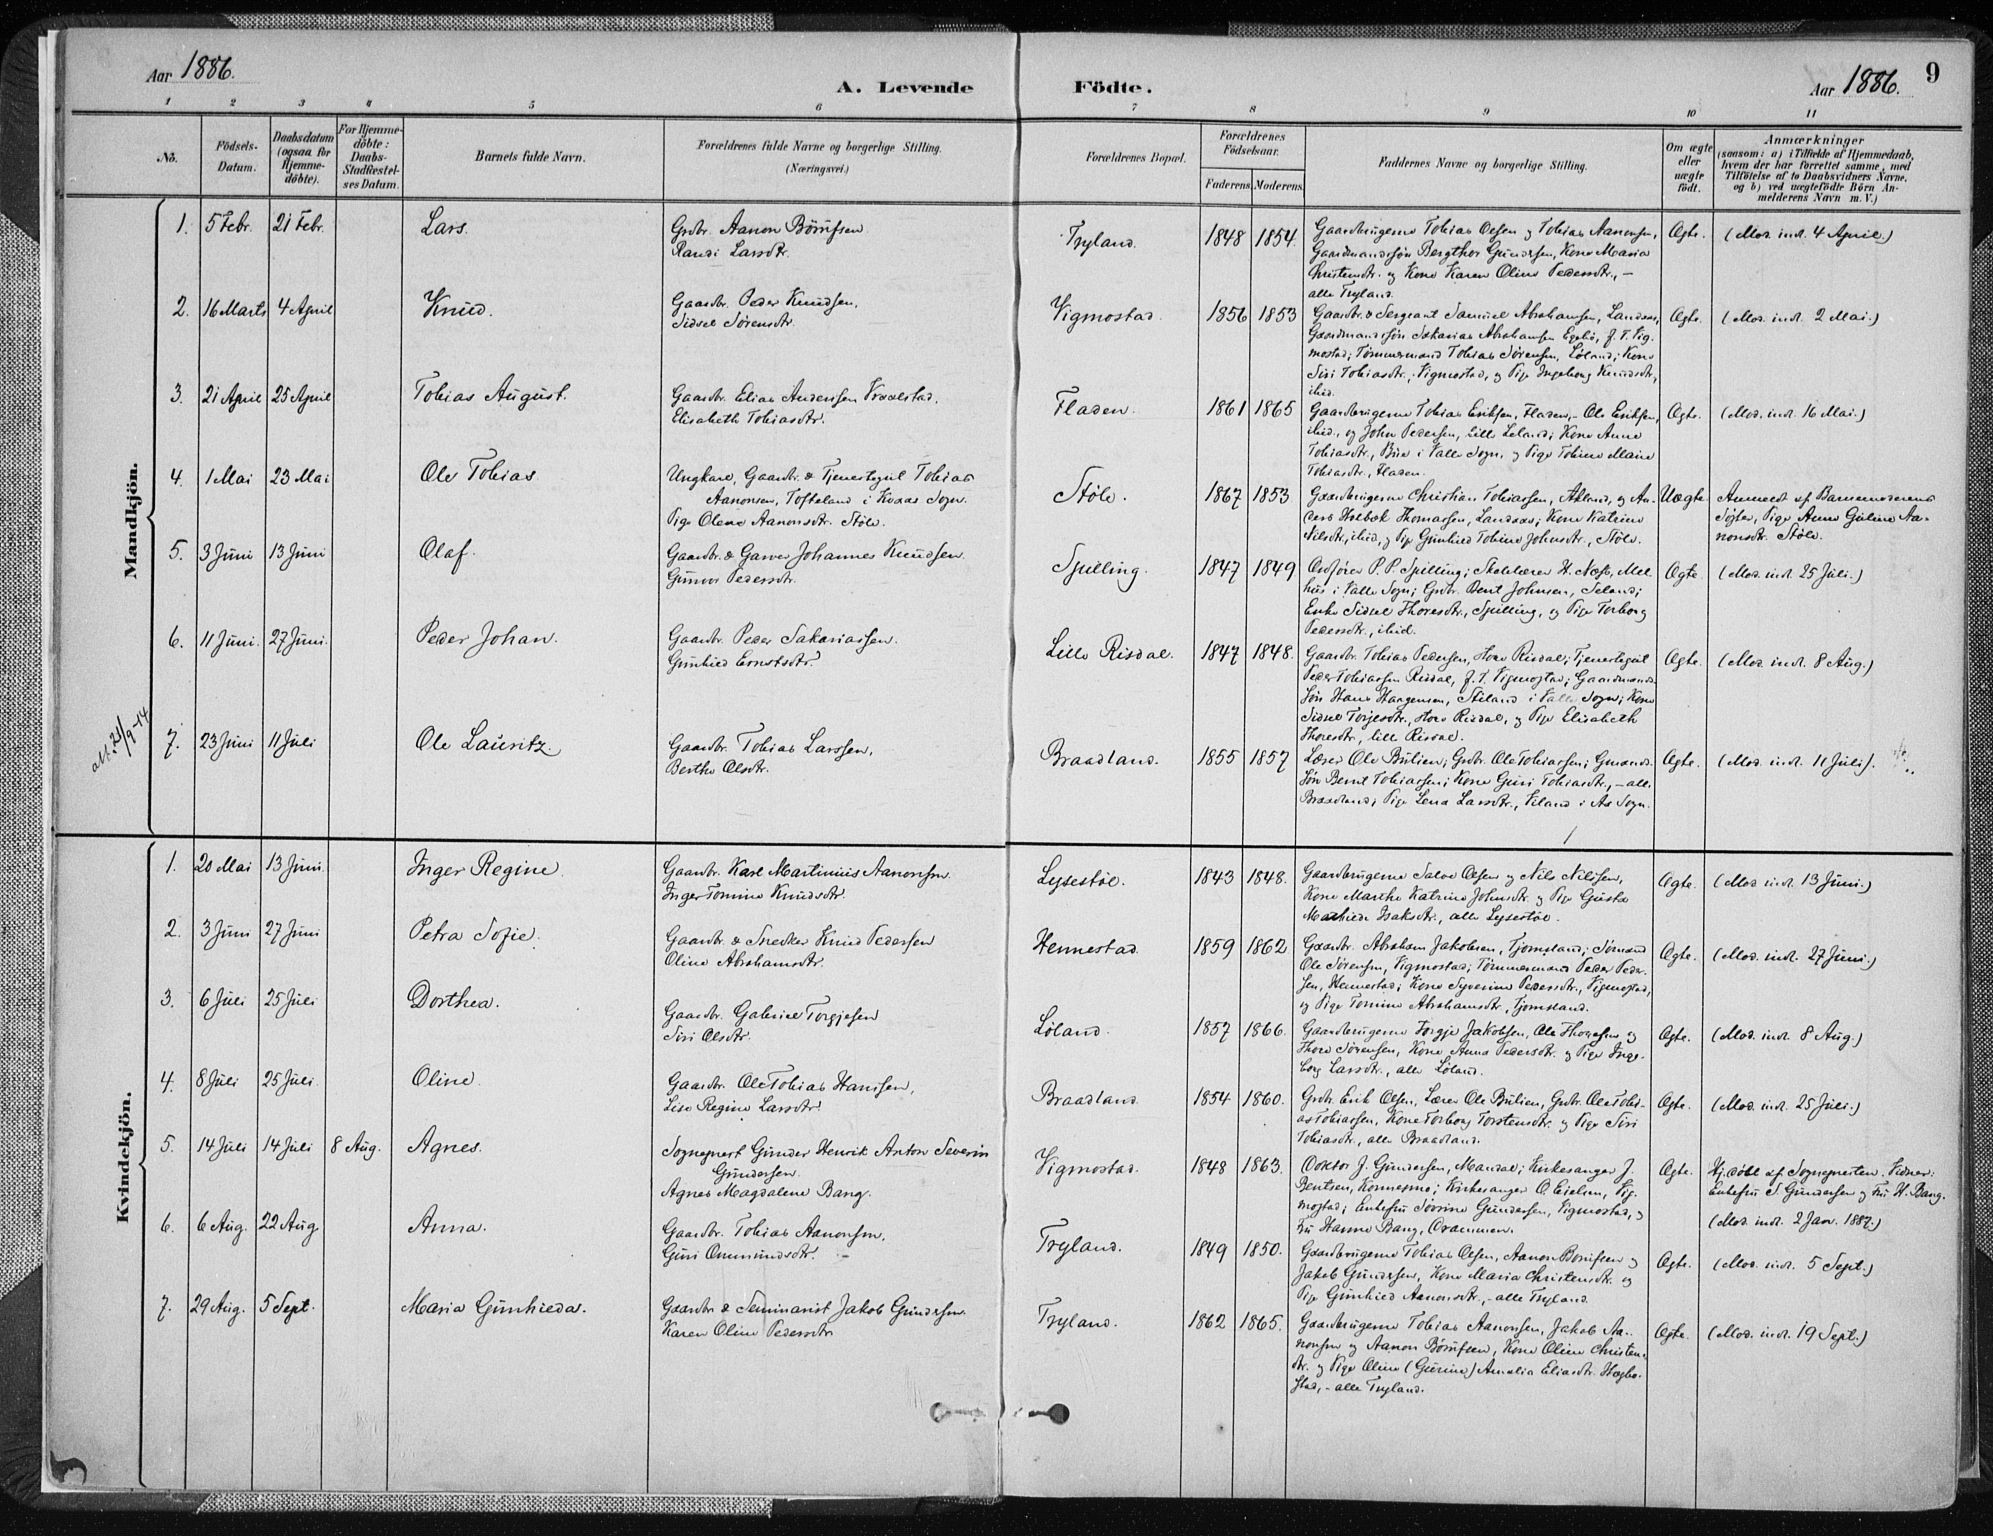 Aar 1886.
A. Levende Födte.
Aar 1886. 9
1 2 3 4 5 6 7 8 9 10 11
No.
Födsels-Datum.
Daabsdatum (ogsaa for Hjemme-döbte).
For Hjemme-döbte: Daabs-Stadfæstel-ses Datum.
Barnets fulde Navn.
Forældrenes fulde Navne og borgerlige Stilling.
(Næringsvei.)
Forældrenes Bopæl.
Forældrenes Födselsaar.
Faderens. Moderens.
Faddernes Navne og borgerlige Stilling.
Om ægte eller uægte födt.
Anmærkninger
(saasom: a) i Tilfælde af Hjemmedaab,
hvem der har forrettet samme, med
Tilföielse af to Daabsvidners Navne,
og b) ved uægtefödte Börn An-
melderens Navn m. V.)
Mandkjön.
1. 5 Febr. 21 Febr. Lars.
Grdbr. Aanon Börufsen
Randi Larsdtr.
Tryland. 1848 1854.
Gaardbrugerne Tobias Olsen og Tobias Aanonsen,
Gaardmandssøn Bergthor Gundersen, Kone Maria
Christensdtr. og Kone Karen Oline Pedersdtr., –
alle Tryland.
Ægte. (Mod. indt. 4 April.)
2. 16 Marts 4 April Knud.
Gaardbr. Peder Knudsen,
Sidsel Sørensdtr.
Vigmostad. 1856 1853
Gaardbr. & Sergeant Samuel Abrahamsen, Landaas,
Gaardmandssøn Sakarias Abrahamsen Egebø, f. T. Vig-
mostad; Tømmermand Tobias Sørensen, Løland; Kone
Siri Tobiasdtr., Vigmostad, og Pige Ingeborg Knudsdtr.,
ibid.
Ægte. (Mod. indt. 2 Mai.)
3. 21 April 25 April Tobias August.
Gaardbr. Elias Andersen Vraalstad.
Elisabeth Tobiasdtr.
Fladen. 1861 1865
Gaardbrugerne Tobias Eriksen, Fladen, – Ole Eriksen,
ibid., og John Pedersen, Lille Leland; Kone Anne
Tobiasdtr., Bue i Valle Sogn, og Pige Tobine Marie
Tobiasdtr., Fladen.
Ægte. (Mod. indt. 16 Mai.)
4. 1 Mai 23 Mai Ole Tobias
Ungkarl, Gaardbr. & Tjenestegut Tobias
Aanonsen, Tofteland i Holme Sogn.
Pige Olene Aanonsdtr. Støle.
Støle. 1867 1853
Gaardbrugerne Christian Tobiassen, Akland, og An-
ders Holbæk Thomassen, Landaas; Kone Katrine
Nilsdtr., ibid., og Pige Gunhild Tobine Johnsdtr., Støle.
Uægte
Anmeldt af Barnemoderens
Søster, Pige Anne Guline Aa-
nonsdtr. Støle.
5. 3 Juni 13 Juni Olaf.
Gaardbr. & Garver Johannes Knudsen.
Gunvor Pedersdtr.
Spilling. 1847 1849
Ordfører P. P. Spilling; Skolelærer H. Næss, Mel-
hus i Valle Sogn; Grdbr. Bent Johnsen, Seland;
Enke Sidsel Thoresdtr., Spilling, og Pige Torborg
Pedersdtr., ibid.
Ægte (Mod. indt. 25 Juli.)
6. 11 Juni. 27 Juni. Peder Johan.
Gaardbr. Peder Sakariassen.
Gunhild Ernstsdtr.
Lille Risdal. 1847 1848.
Gaardbr. Tobias Pedersen, Store Risdal; Tjenestegut
Peder Tobiassen Risdal, f. T. Vigmostad; Gaardmands-
søn Hans Haagensen, Stiland i Valle Sogn; Kone
Sidsel Torjesdtr., Store Risdal, og Pige Elisabeth
Thoresdtr., Lille Risdal.
Ægte. (Mod. indt. 8 Aug.)
att. 21/9-14
7. 23 Juni 11 Juli Ole Lauritz.
Gaardbr. Tobias Larssen,
Berthe Olsdtr.
Braadland. 1855 1857
Lærer Ole Bulien; Grdbr. Ole Tobiassen; Gmands-
søn Bernt Tobiassen; Kone Guri Tobiasdtr., – alle
Braadland; Pige Lena Larsdtr., Viland i Aa Sogn.
Ægte. (Mod. indt. 11 Juli).
Kvindekjön.
1. 20 Mai 13 Juni Inger Regine.
Gaardbr. Karl Martinius Aanonsen.
Inger Tomine Knudsdtr.
Lysestøl. 1843 1848.
Gaardbrugerne Salve Olsen og Nils Nilssen,
Kone Marthe Katrine Johnsdtr. og Pige Gusta
Mathilde Isaksdtr., alle Lysestøl.
Ægte. (Mod. indt. 13 Juni.)
2. 3 Juni 27 Juni Petra Sofie.
Gaardbr. & Snedker Knud Pedersen
Oline Abrahamsdtr.
Hennestad. 1859 1862
Gaardbr. Abraham Jakobsen, Tjomsland; Sømand
Ole Sørensen, Vigmostad; Tømmermand Peder Peder-
sen, Hennestad; Kone Syverine Pedersdtr., Vigmostad,
og Pige Tomine Abrahamsdtr., Tjomsland.
Ægte. (Mod. indt. 27 Juni.)
3. 6 Juli 25 Juli Dorthea.
Gaardbr. Gabriel Torgjesen
Siri Olsdtr.
Løland. 1857 1866.
Gaardbrugerne Torgje Jakobsen, Ole Thoresen og
Thore Sørensen, Kone Anna Pedersdtr. og Pige Inge-
borg Larsdtr., alle Løland.
Ægte. (Mod. indt. 8 Aug.)
4. 8 Juli 25 Juli. Oline.
Gaardbr. Ole Tobias Hanssen,
Lise Regine Larsdtr.
Braadland 1854 1860.
Grdbr. Erik Olsen, Lærer Ole Bulien, Grdbr. Ole Tobi-
as Tobiassen, Kone Torborg Torstensdtr. og Pige Siri
Tobiasdtr., alle Braadland.
Ægte. (Mod. indt. 25 Juli.)
5. 14 Juli 14 Juli 8 Aug. Agnes.
Sogneprest Gunder Henrik Anton Severin
Gundersen.
Agnes Magdalene Bang.
Vigmostad. 1848 1863.
Doktor J. Gundersen, Mandal; Kirkesanger J.
Bentsen, Konnesmo; Kirkesanger O. Eielsen, Vig-
mostad; Enkefru Sørine Gundersen, Vigmostad, og
Fru Hanne Bang, Drammen.
Ægte.
Hj. døbt af Sognepresten. Vidner:
Enkefru S. Gundersen og Fru H. Bang.
(Mod. indt. 2 Jan. 1887.)
6. 6 Aug. 22 Aug. Anna.
Gaardbr. Tobias Aanonsen,
Guri Ommundsdtr. –
Tryland. 1849 1850.
Gaardbrugerne Tobias Olsen, Aanon Børufsen og
Jakob Gundersen, Kone Maria Christensdtr. og
Pige Gunhild Aanonsdtr., – alle Tryland.
Ægte. (Mod. indt. 5 Sept.)
7. 29 Aug. 5 Sept. Maria Gunhilda.
Gaardbr. & Seminarist Jakob Gundersen.
Karen Oline Pedersdtr.
Tryland. 1862 1865.
Gaardbrugerne Tobias Aanonsen, Jakob Aa-
nonsen og Aanon Børufsen, Kone Oline Christens-
dtr. og Pige Oline (Gurine) Amalia Eliasdtr. Hægbo-
stad, – alle Tryland.
Ægte. (Mod. indt. 19 Sept.)